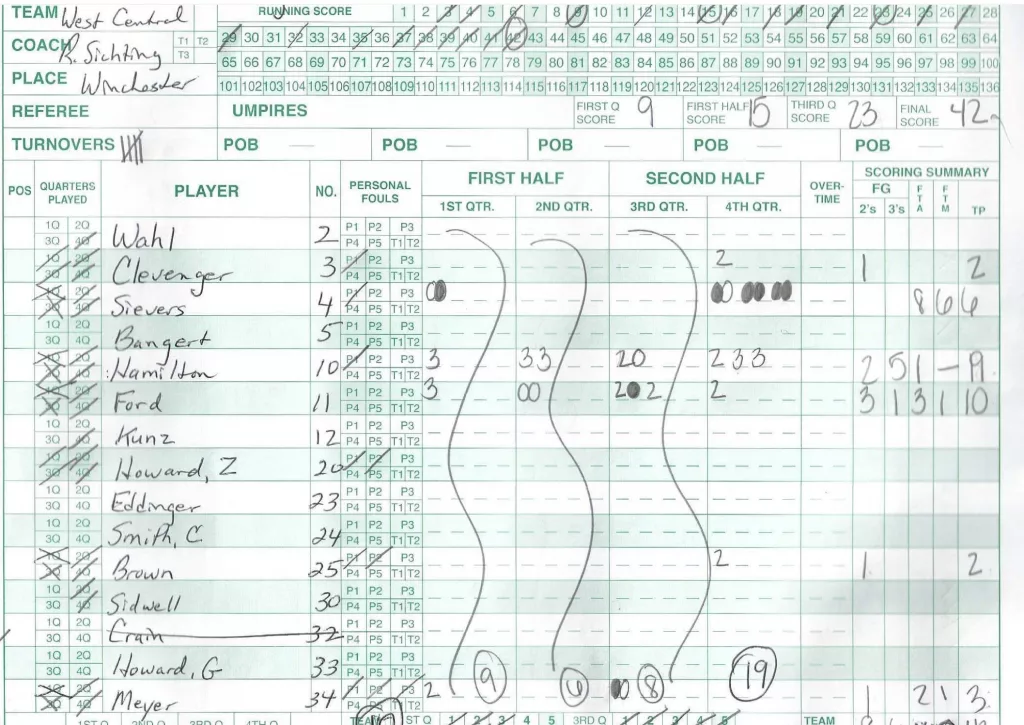 TEAM West Central RUNNING SCORE 1 2 3 4 5 6 7 8 9 10 11 12 13 14 15 16 17 18 19 20 21 22 23 24 25 26 27 28
COACH R. Sichting T1 T2 T3 29 30 31 32 33 34 35 36 37 38 39 40 41 42 43 44 45 46 47 48 49 50 51 52 53 54 55 56 57 58 59 60 61 62 63 64
65 66 67 68 69 70 71 72 73 74 75 76 77 78 79 80 81 82 83 84 85 86 87 88 89 90 91 92 93 94 95 96 97 98 99 100
PLACE Winchester 101 102 103 104 105 106 107 108 109 110 111 112 113 114 115 116 117 118 119 120 121 122 123 124 125 126 127 128 129 130 131 132 133 134 135 136
REFEREE UMPIRES FIRST Q SCORE 9 FIRST HALF SCORE 15 THIRD Q SCORE 23 FINAL SCORE 42
TURNOVERS POB — POB — POB — POB — POB —
POS QUARTERS PLAYED PLAYER NO. PERSONAL FOULS FIRST HALF SECOND HALF OVER-TIME SCORING SUMMARY
1ST QTR. 2ND QTR. 3RD QTR. 4TH QTR. FG 2's 3's FTA FTM TP
1Q 2Q 3Q 4Q Wahl 2 P1 P2 P3 P4 P5 T1 T2
1Q 2Q 3Q 4Q Clevenger 3 P1 P2 P3 P4 P5 T1 T2 2 1 2
1Q 2Q 3Q 4Q Sievers 4 P1 P2 P3 P4 P5 T1 T2 00 00 00 00 8 6 6
1Q 2Q 3Q 4Q Bangert 5 P1 P2 P3 P4 P5 T1 T2
1Q 2Q 3Q 4Q Hamilton 10 P1 P2 P3 P4 P5 T1 T2 3 33 20 2 3 3 2 5 1 – 19
1Q 2Q 3Q 4Q Ford 11 P1 P2 P3 P4 P5 T1 T2 3 00 20 2 2 3 1 3 1 10
1Q 2Q 3Q 4Q Kunz 12 P1 P2 P3 P4 P5 T1 T2
1Q 2Q 3Q 4Q Howard, Z 20 P1 P2 P3 P4 P5 T1 T2
1Q 2Q 3Q 4Q Eddinger 23 P1 P2 P3 P4 P5 T1 T2
1Q 2Q 3Q 4Q Smith, C 24 P1 P2 P3 P4 P5 T1 T2
1Q 2Q 3Q 4Q Brown 25 P1 P2 P3 P4 P5 T1 T2 2 1 2
1Q 2Q 3Q 4Q Sidwell 30 P1 P2 P3 P4 P5 T1 T2
1Q 2Q 3Q 4Q Crain 32 P1 P2 P3 P4 P5 T1 T2
1Q 2Q 3Q 4Q Howard, G 33 P1 P2 P3 P4 P5 T1 T2 9 6 8 19
1Q 2Q 3Q 4Q Meyer 34 P1 P2 P3 P4 P5 T1 T2 2 00 1 2 1 3
1ST Q 2ND Q 3RD Q 4TH Q TEAM 1ST Q 1 2 3 4 5 3RD Q 1 2 3 4 5 TEAM